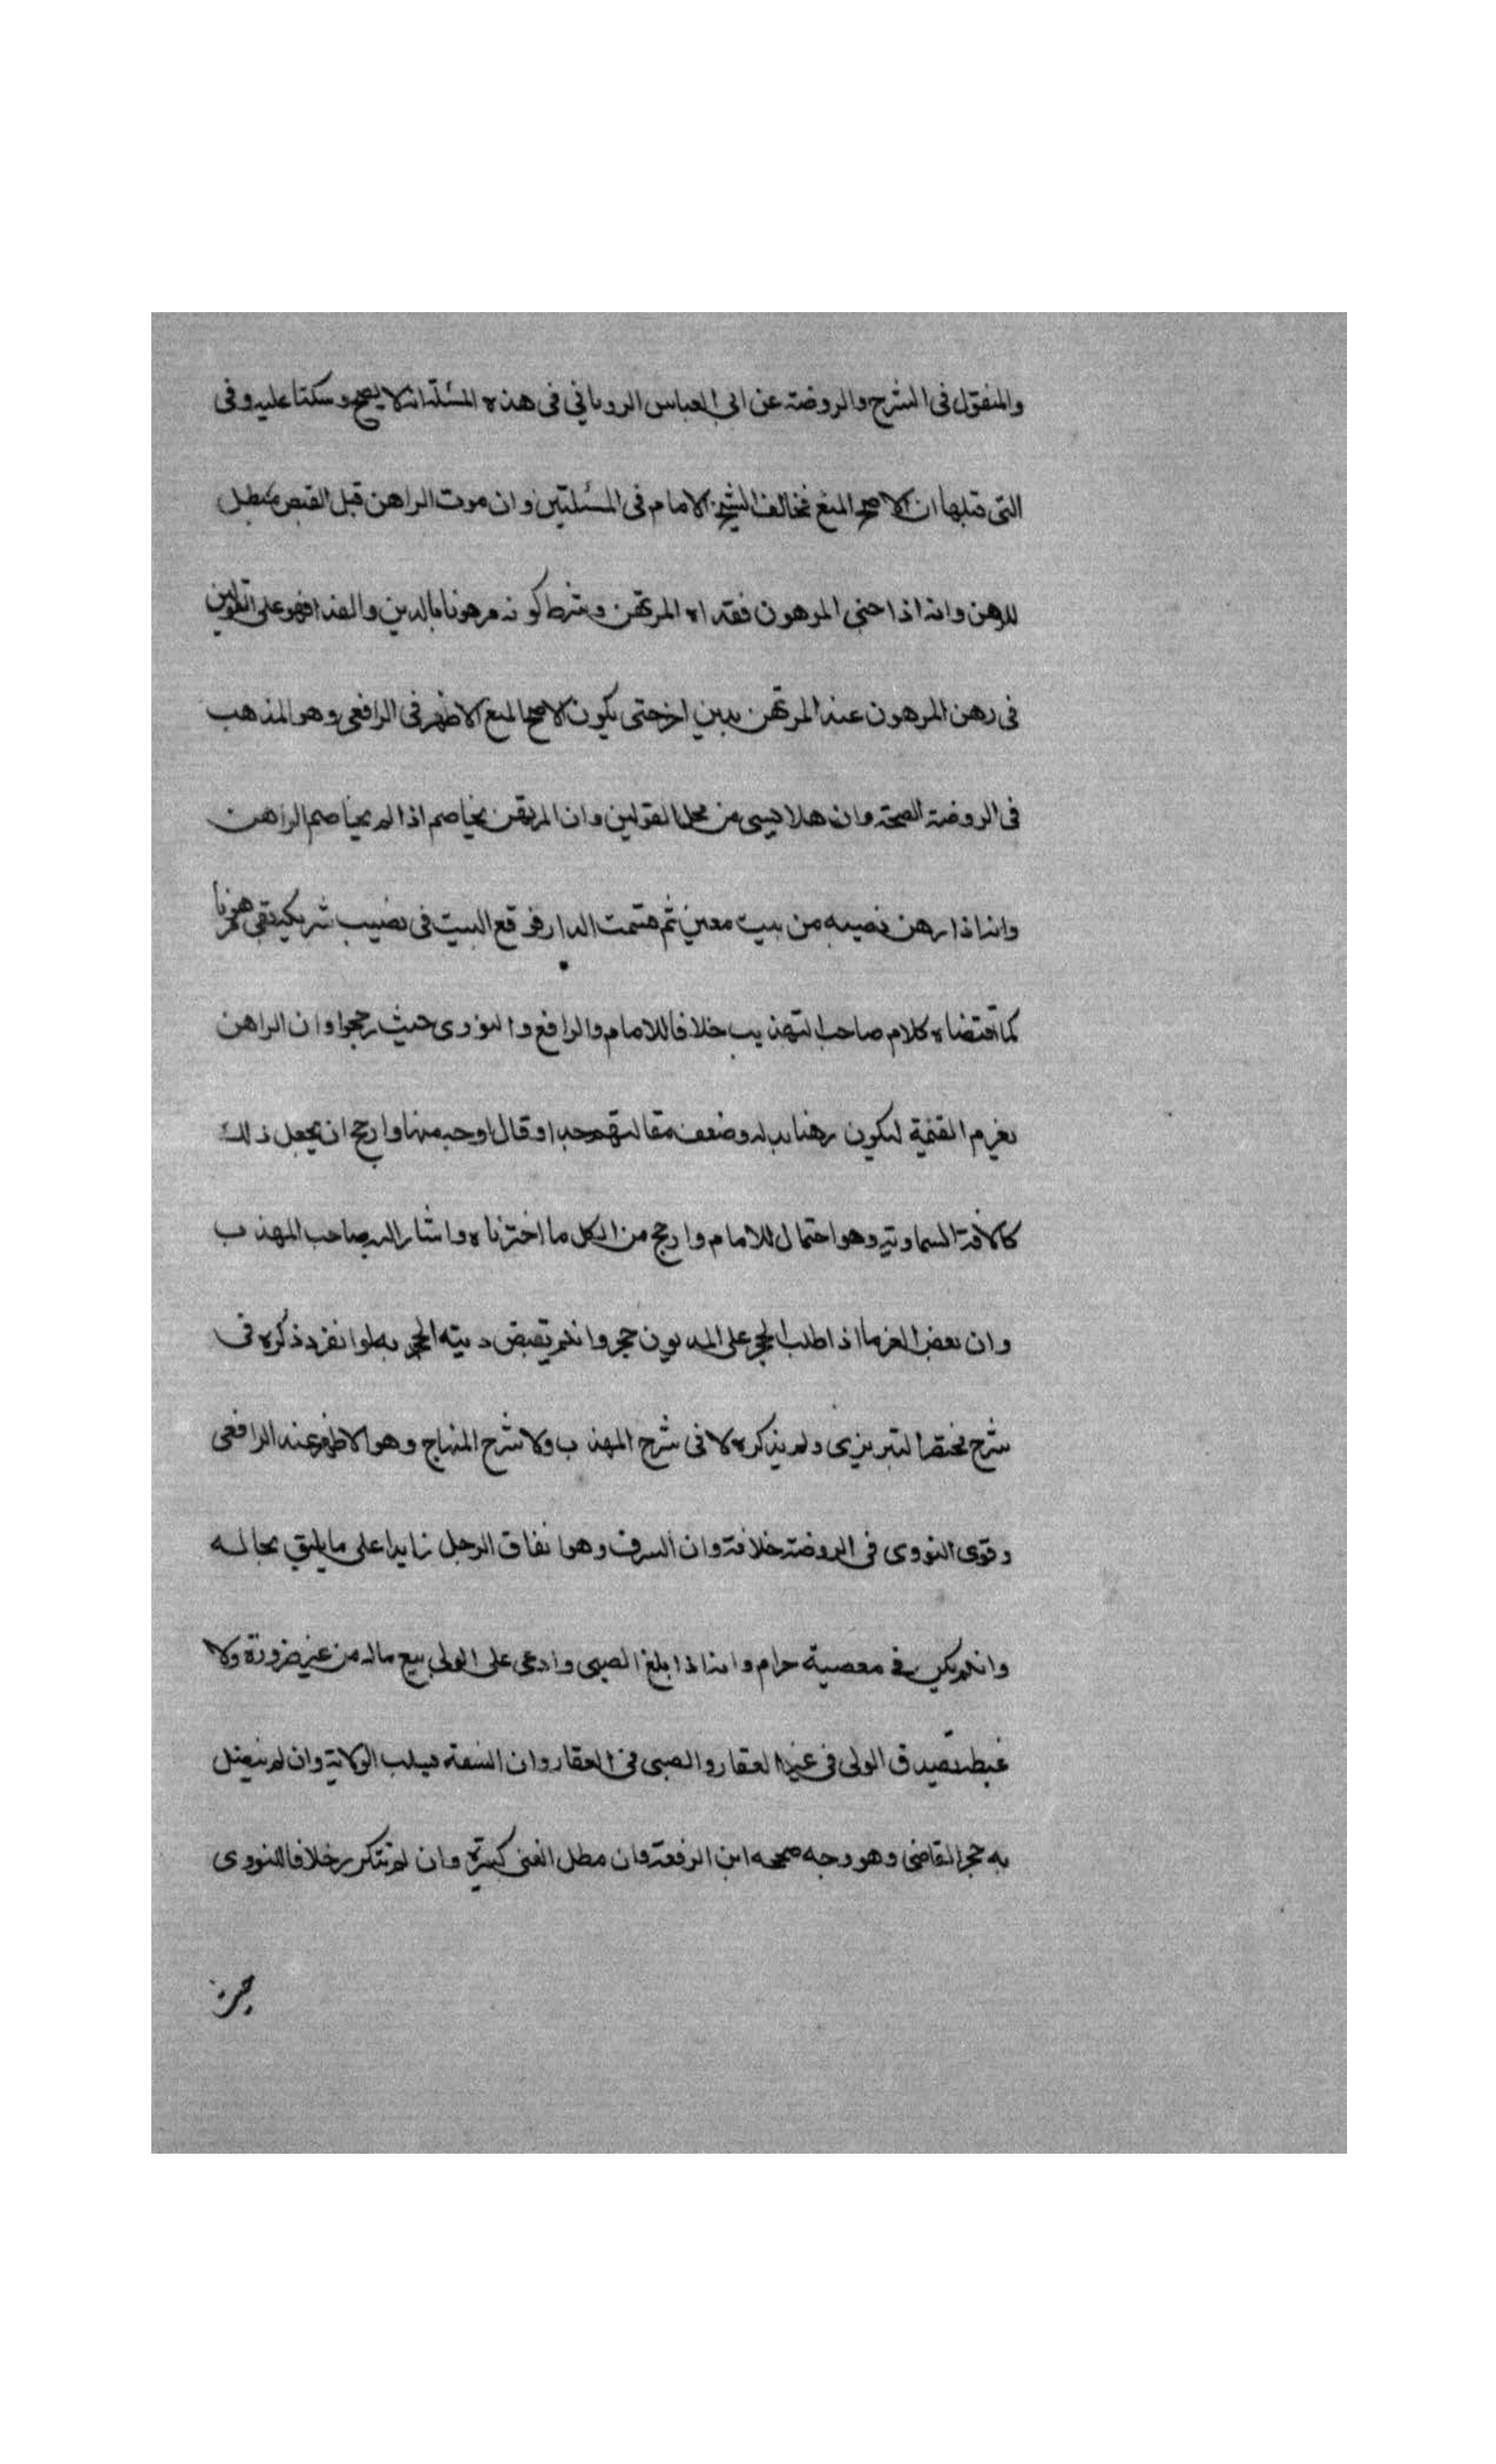 والمنقول فى الشرح والروضة عن ابى العباس الرويانى فى هذه المسئلة انه لا يصح وسكتا عليه وفى
التى قبلها ان الاصح المنع فخالف الشيخ الامام فى المسئلتين وان موت الراهن قبل القبض مبطل
للرهن وانه اذا جنى المرهون ففداه المرتهن وشرط كونه مرهونا بالدين والفدا فهو على القولين
فى رهن المرهون عند المرتهن بدين اخر حتى يكون الاصح المنع الاظهر فى الرافعى وهو المذهب
فى الروضة الصحة وان هلا ديسى من محل القولين وان المرتهن يخاصم اذا لم يخاصم الراهن
وانه اذا رهن نصيبه من بيت معين ثم قسمت الدار فوقع البيت فى نصيب شريكه بقى مرهونا
كما اقتضاه كلام صاحب التهذيب خلافا للامام والرافع والنووى حيث رجحوا ان الراهن
يغرم القيمة ليكون رهنا بدله وضعف مقالتهم جدا وقال اوجه منها وارجح ان يجعل ذلك
كالافة السماوية وهو احتمال للامام وارجح من الكل ما اخترناه واشار اليه صاحب المهذب
وان بعض الغرما اذا طلب الحجر على المديون حجر وان لم يقبض دينه الحجر به لو انفرد ذكره فى
شرح مختصر التبريزى ولم يذكره لا فى شرح المهذب ولا شرح المنهاج وهو الاظهر عند الرافعى
وقوى النووى فى الروضة خلافه وان السرف وهو انفاق الرجل زايدا على ما يليق بحاله
وان لم يكن فى معصية حرام وانه اذا بلغ الصبى وادعى على الولى بيع ماله من غير ضرورة ولا
غبطة تصديق الولى فى غير العقار والصبى فى العقار وان السفه يسلب الولاية وان لم يتصل
به حجر القاضى وهو وجه صححه ابن الرفعة وان مطل الغنى كبيرة وان لم يتكرر خلافا للنووى